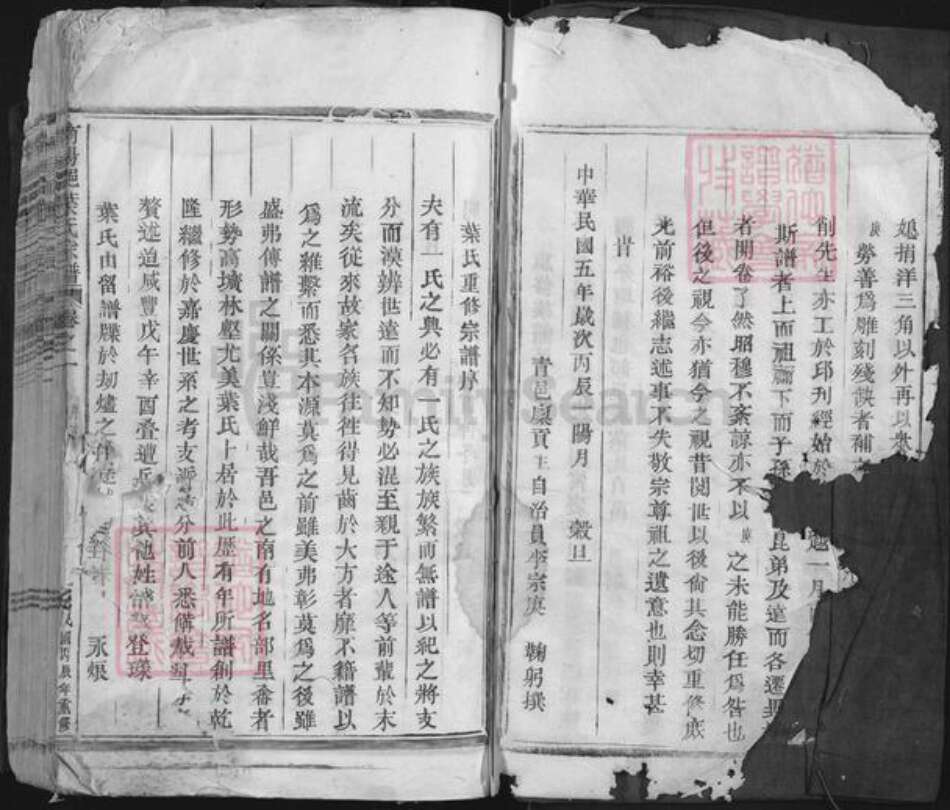 姚捐洋三角以外再以衆
庚勞善爲雕刻殘缺者補
削先生亦工於邱刋經始於 越一月
斯譜者上而祖禰下而子孫 昆弟及遠而各遷異
者開卷了然昭穆不紊諒亦不以庚之未能勝任爲咎也
但後之視今亦猶今之視昔閱世以後尙其念切重修庶
光前裕後繼志述事不失敬宗尊祖之遺意也則幸甚
旹
中華民國五年歲次丙辰 陽月 穀旦
青邑廩貢生自治員李宗庚 鞠躬撰
葉氏重修宗譜序
夫有一氏之興必有一氏之族族繁而無譜以紀之將支
分而漠辨世遠而不知勢必混至親于途人等前輩於末
流矣從來故家名族往往得見齒於大方者靡不籍譜以
爲之維繫而悉其本源莫爲之前雖美弗彰莫爲之後雖
盛弗傳譜之關係豈淺鮮哉吾邑之南有地名部里畲者
形勢高壙林壑尤美葉氏卜居於此歷有年所譜創於乾
隆繼修於嘉慶世系之考支派之分前人悉備載無
贅述迨咸豐戊午辛酉叠遭兵 其他姓譜 登瑛
葉氏由留譜牒於刼爐之 永烺
葉氏宗譜 卷之一 民國丙辰年重修
FamilySearch